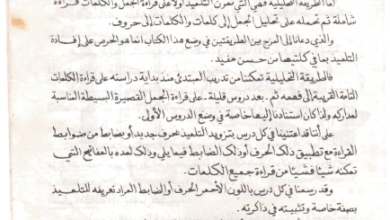 أما الطريقة التحليلية فهي التي تمرن التلميذ أولا على قراءة الجمل والكلمات قراءة
شاملة ثم تحمله على تحليل الجمل إلى كلمات والكلمات إلى حروف.
والذي دعانا إلى المزج بين الطريقتين في وضع هذا الكتاب إنما هو الحرص على إفادة
التلميذ بما في كلتيهما من حسن مفيد.
فالطريقة التحليلية تمكننا من تدريب المبتدئ منذ بداية دراسته على قراءة الكلمات
التامة القريبة إلى فهمه ثم.. بعد دروس قليلة.. على قراءة الجمل القصيرة البسيطة المناسبة
لمداركه ولذا كان استنادنا إليها خاصة في وضع الدروس الأولى.
على أننا قد اعتنينا في كل درس بتزويد التلميذ بحرف جديد أو بضابط من ضوابط
القراءة مع تطبيق ذلك الحرف أو ذلك الضابط فيما يلي وذلك لمده بالمفاتيح التي
تمكنه شيئا فشيئا من قراءة جميع الكلمات.
وقد رسمنا في كل درس باللون الأحمر الحرف أو الضابط المراد تعريفه للتلميذ
بصفة خاصة وتثبيته في ذاكرته.